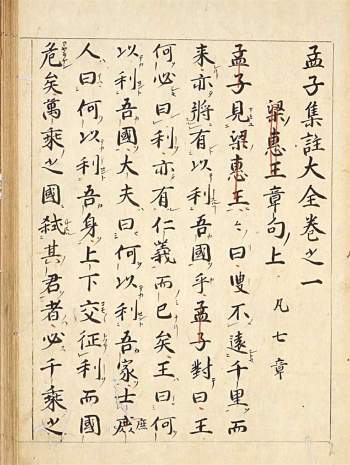 孟子集註大全卷之一
梁惠王章句上 凡七章
孟子見梁惠王〻曰叟不遠千里而
来亦將有以利吾國乎孟子對曰王
何必曰利亦有仁義而已矣王曰何
以利吾國大夫曰何以利吾家士庶
人曰何以利吾身上下交征利而國
危矣萬乘之國弑其君者必千乘之